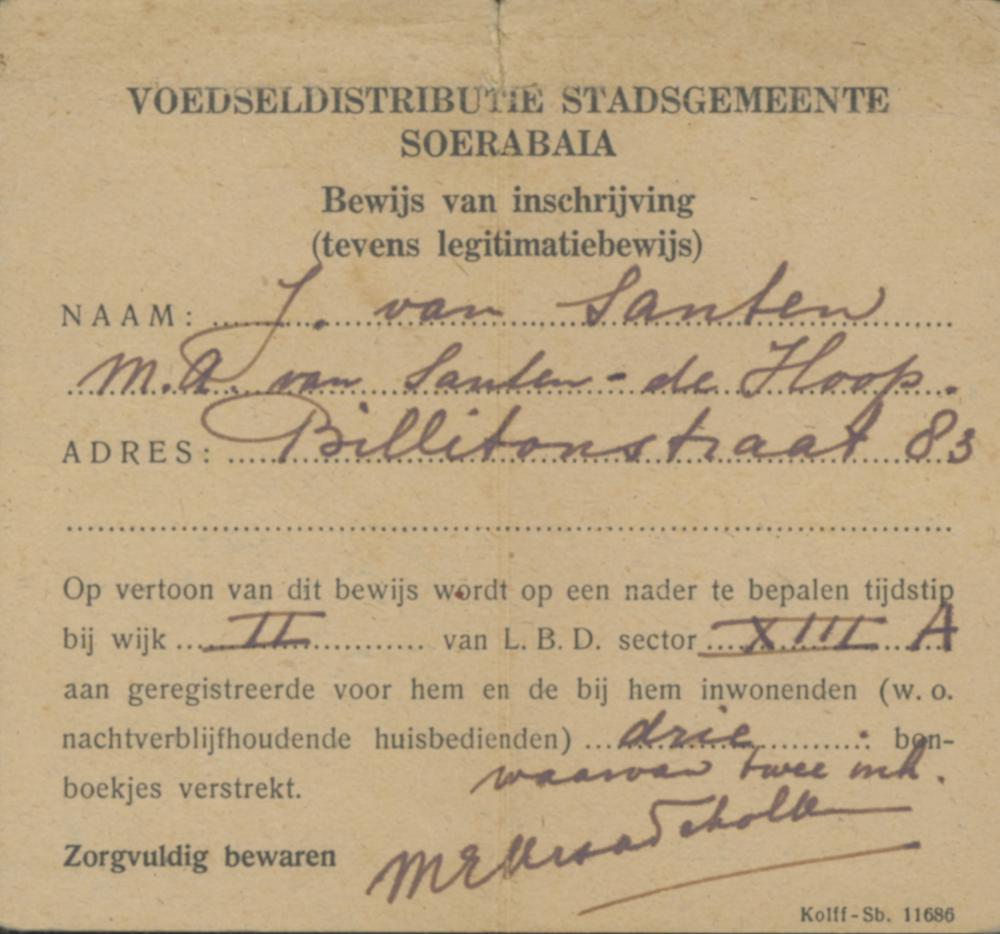 VOEDSELDISTRIBUTIE STADSGEMEENTE
SOERABAIA
Bewijs van inschrijving
(tevens legitimatiebewijs)
NAAM: J. van Santen
M.A. van Santen - de Hoop.
ADRES: Billitonstraat 83
Op vertoon van dit bewijs wordt op een nader te bepalen tijdstip
bij wijk II van L.B.D. sector XIII A
aan geregistreerde voor hem en de bij hem inwonenden (w.o.
nachtverblijfhoudende huisbedienden) drie bon-
waarvan twee inh.
boekjes verstrekt.
Zorgvuldig bewaren
Kolff-Sb. 11686